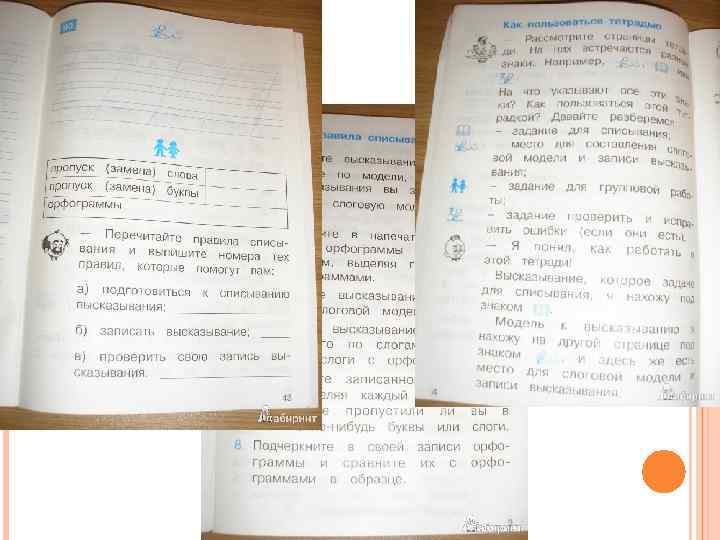 90
пропуск (замена) слова
пропуск (замена) буквы
орфограммы
— Перечитайте правила списы-
вания и выпишите номера тех
правил, которые помогут вам:
а) подготовиться к списыванию
высказывания;
б) записать высказывание;
в) проверить свою запись вы-
сказывания.
43
Лабиринт
равила списыва
те высказывани
е по модели;
зывания вы з
слоговую мо
ите в напечат
орфограммы
м, выделяя г
раммами.
е высказывани
логовой моде
высказывание
го по слогам
слоги с орфо
те записанно
еляя каждый
е пропустили ли вы в
-нибудь буквы или слоги.
8. Подчеркните в своей записи орфо-
граммы и сравните их с орфо-
граммами в образце.
3
Лабиринт
Как пользоваться тетрадью
— Рассмотрите страницы тетра-
ди. На них встречаются разные
знаки. Например, или
На что указывают все эти зна-
ки? Как пользоваться этой тет-
радкой? Давайте разберемся
– задание для списывания;
– место для составления слого-
вой модели и записи высказы-
вания;
– задание для групповой рабо-
ты;
– задание проверить и испра-
вить ошибки (если они есть).
— Я понял, как работать в
этой тетради!
Высказывание, которое задано
для списывания, я нахожу под
знаком
Модель к высказыванию я
нахожу на другой странице под
знаком и здесь же есть
место для слоговой модели и
записи высказывания.
4
Лабиринт